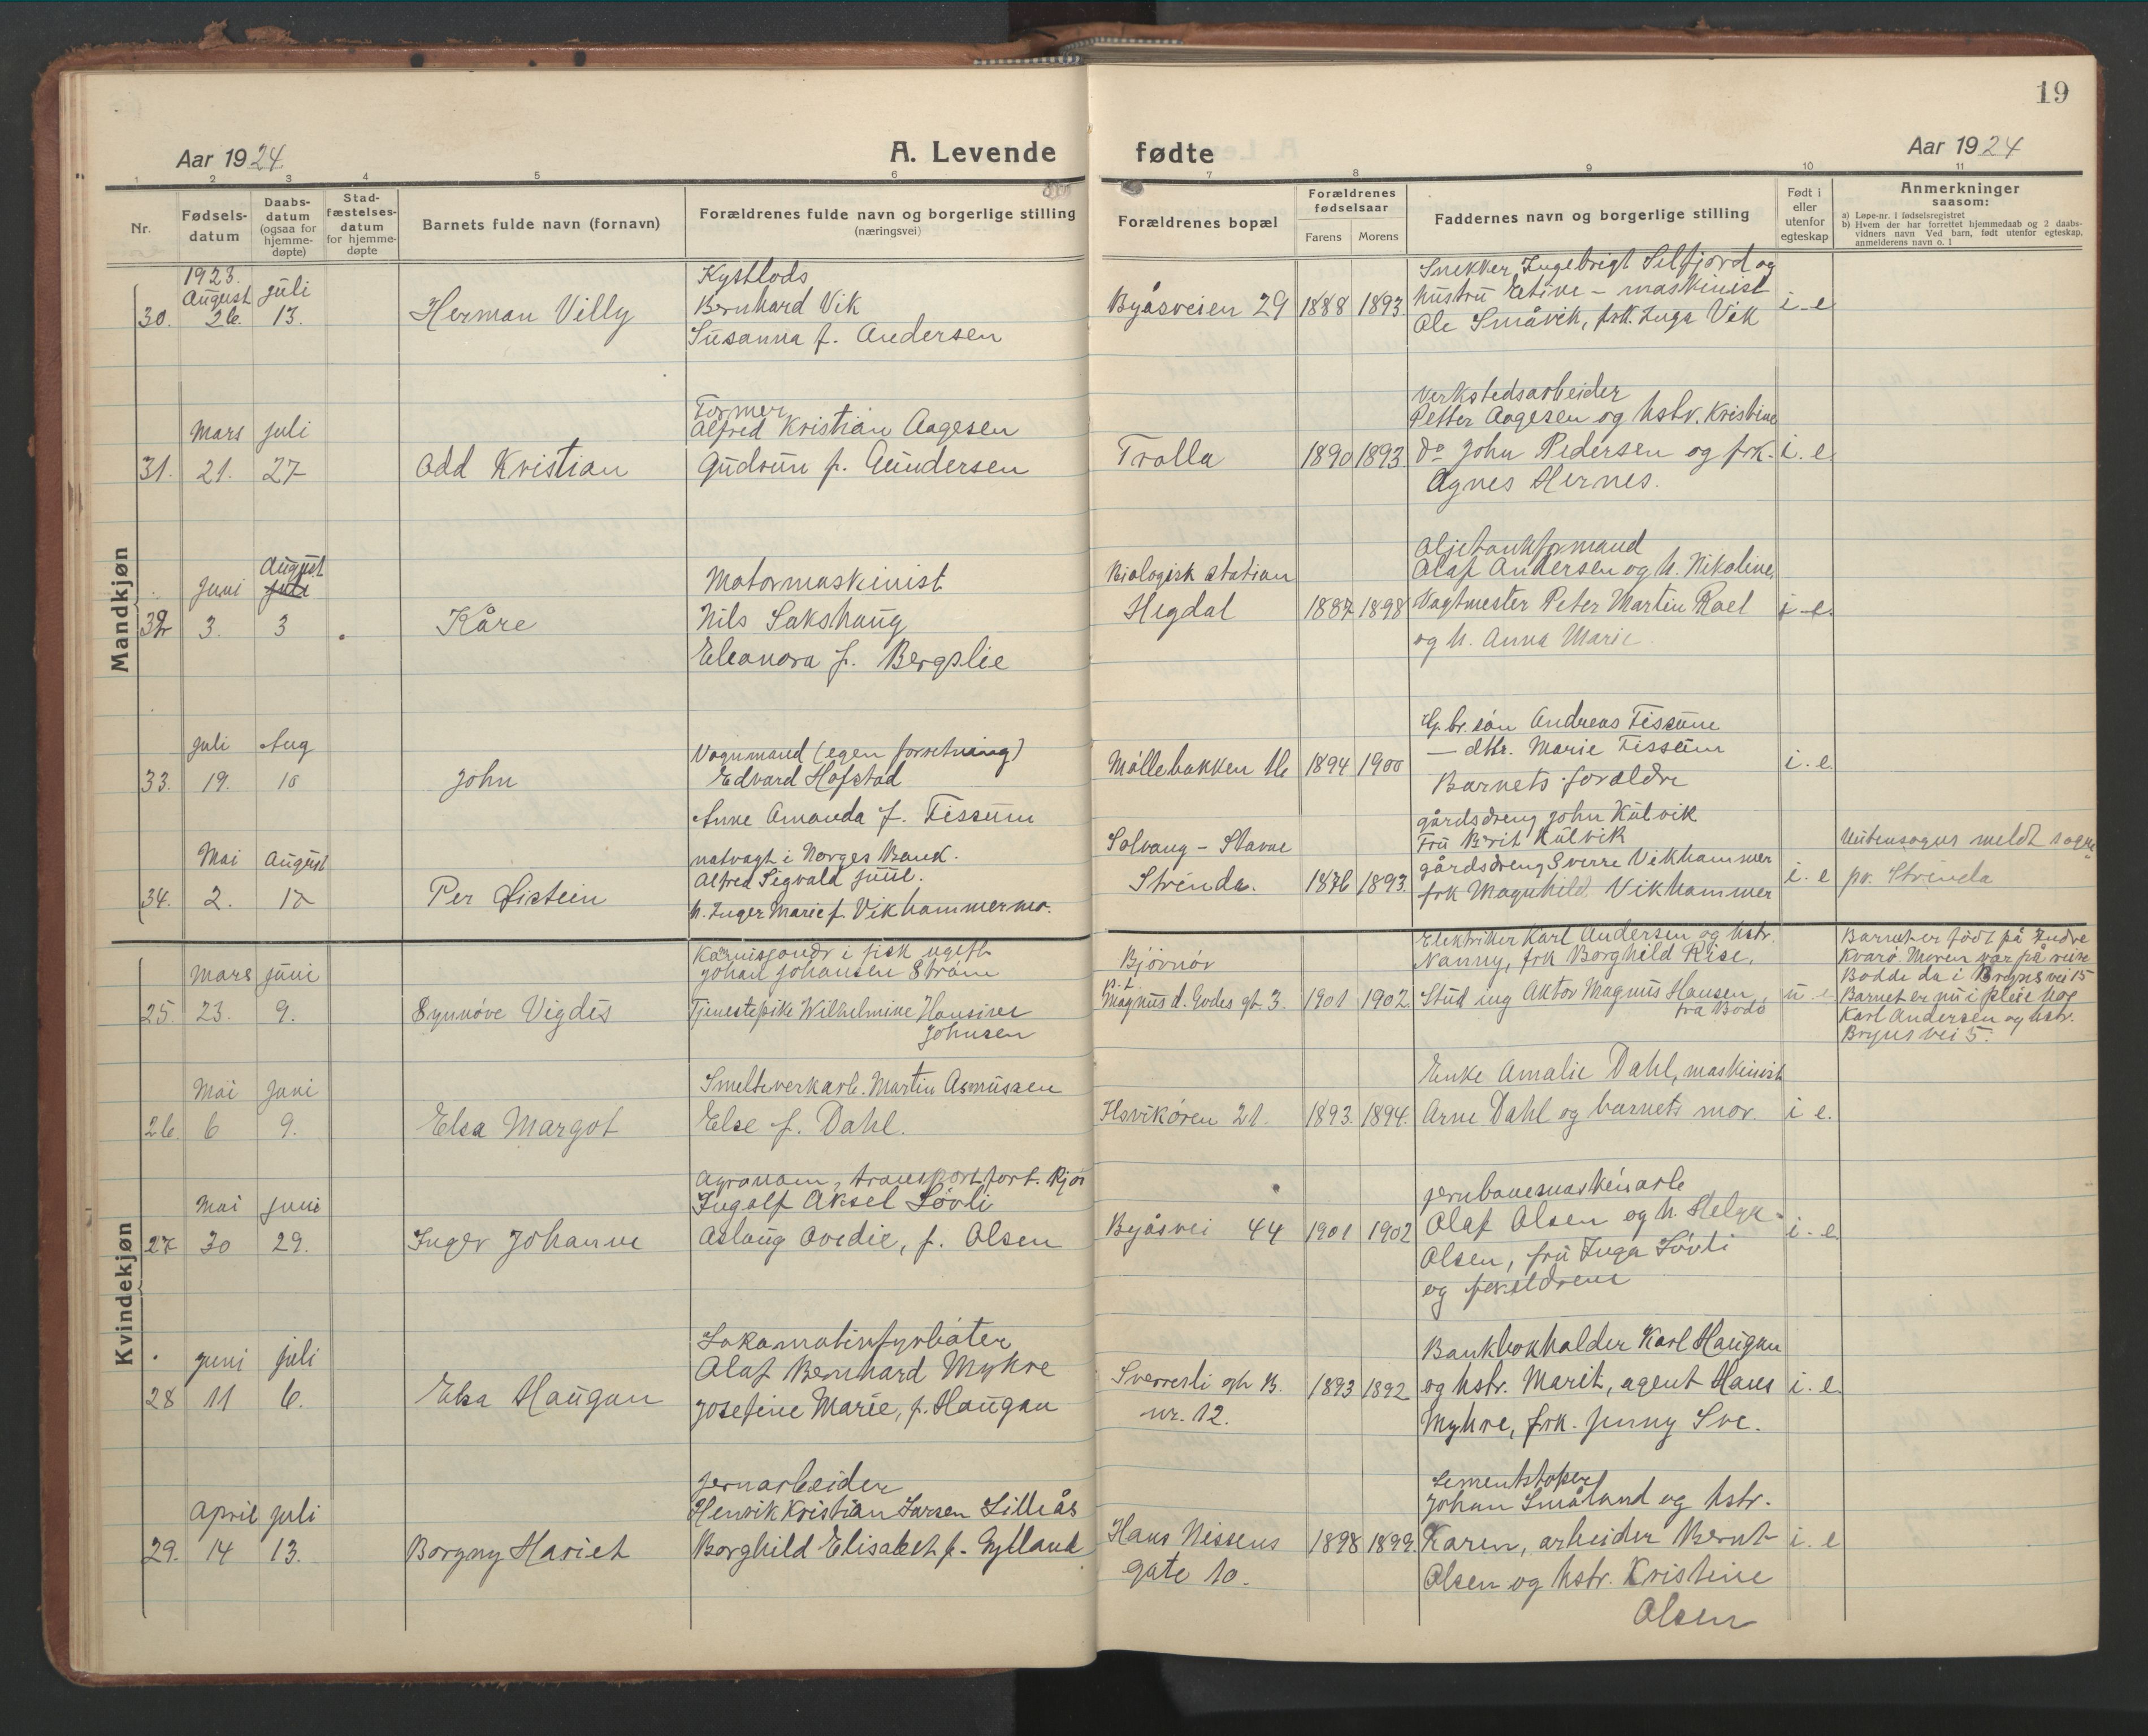 19
Aar 1924
A. Levende fødte
Aar 1924
1 2 3 4 5 6 7 8 9 10 11
Nr.
Fødsels-
datum
Daabs-
datum
(ogsaa for
hjemme-
døpte)
Stad-
fæstelses-
datum
for hjemme-
døpte
Barnets fulde navn (fornavn)
Forældrenes fulde navn og borgerlige stilling
(næringsvei)
Forældrenes bopæl
Forældrenes
fødselsaar
Farens Morens
Faddernes navn og borgerlige stilling
Født i
eller
utenfor
egteskap
Anmerkninger
saasom:
a) Løpe-nr. i fødselsregistret
b) Hvem der har forrettet hjemmedaab og 2 daabs-
vidners navn Ved barn, født utenfor egteskap,
anmelderens navn o. l
Mandkjøn
30.
1923.
August
26.
juli
13.
Herman Villy
Kystlods
Bernhard Vik
Susanna f. Andersen
Byåsveien 29
1888 1893.
Snekker Ingebrigt Selfjord og
hustru - maskinist
Ole Småvik, frk. Inga Vik
i-e
31.
Mars
21.
juli
27
Odd Kristian
Former
Alfred Kristian Aagesen
Gudrun f. Gundersen
Trolla
1890 1893.
Verkstedsarbeider
Petter Aagesen og hstr. Kristine
do John Pedersen og frk.
Agnes Hernes.
i. e.
32
Juni
3.
August
juli
3
Kåre
Motormaskinist
Nils Sakshaug
Eleonora f. Bergslie
Biologisk station
Hegdal
1887 1898
Oljetankformand
Olaf Andersen og h. Nikoline,
Vagtmester Peter Martin Roel
og h. Anna Marie.
i-e.
33.
juli
19.
Aug
10
John
Vognmand (egen forretning)
Edvard Hofstad
Anne Amanda f. Tissum
Møllebakken 16
1894 1900
G.br.søn Andreas Tissum
— dtr. Marie Tissum
Barnets forældre
i. e.
34.
Mai
2.
August
17
Per Øistein
natvagt i Norges Bank.
Alfred Sigvald Juul.
h. Inger Marie f. Vikhammermo.
Solvang - Stavne
Strinda.
1876 1893.
gårdsdreng John Kulvik
Fru Berit Kulvik
gårdsdreng Sverre Vikhammer
frk Magnhild Vikhammer
i. e
Utensogns meldt sogne
pr. Strinda
Kvindekjøn
25.
Mars
23.
juni
9.
Synnøve Vigdis
i fisk ugift
Johan Johansen Strøm
Tjenestepike Wilhelmine Hansine
Johnsen
Bjørnør
p.t.
Magnus d. Godes gt. 3.
1901 1902.
Elektriker Karl Andersen og hstr.
Nanny, frk Borghild Rise,
Stud ing Aktor Magnus Hansen,
fra Bodø
u. e
Barnet er født på Indre
Kvarø. Moren var på reise
Bodde da i Bryns vei 15
Barnet er nu i pleie hos
Karl Andersen og hstr.
Bryns vei 5.
26.
Mai
6
Juni
9.
Elsa Margot
Smelteverkarb. Martin Asmussen
Else f. Dahl.
Ilsvikøren 21.
1893. 1894.
Enke Amalie Dahl, maskinist
Arne Dahl og barnets mor.
i e.
27
Mai
30
Juni
29.
Inger Johanne
Agronom, transportforr.
Ingolf Aksel Løvli
Aslaug Ovedie, f. Olsen
Byåsvei 44
1901 1902
jernbanemaskinarb
Olaf Olsen og h. Helga
Olsen, fru Inga Løvli
og forældrene
i. e.
28
juni
11
juli
6.
Elsa Haugan
Lokomotivfyrbøter
Olaf Bernhard Myhre
Josefine Marie, f. Haugan
Sverresli gt B.
nr. 12.
1893 1892
Bankbokholder Karl Haugan
og hstr. Marit, agent Hans
Myhre, frk. Jenny Sve.
i. e.
29.
April
14
juli
13.
Borgny Hariet
jernarbeider
Henrik Kristian Larsen Lilleås
Borghild Elisabet f. Gylland
Hans Nissens
gate 10.
1898 1899.
Sementstøper
Johan Småland og hstr.
Karen, arbeider Bernt
Olsen og hstr. Kristine
Olsen
i. e